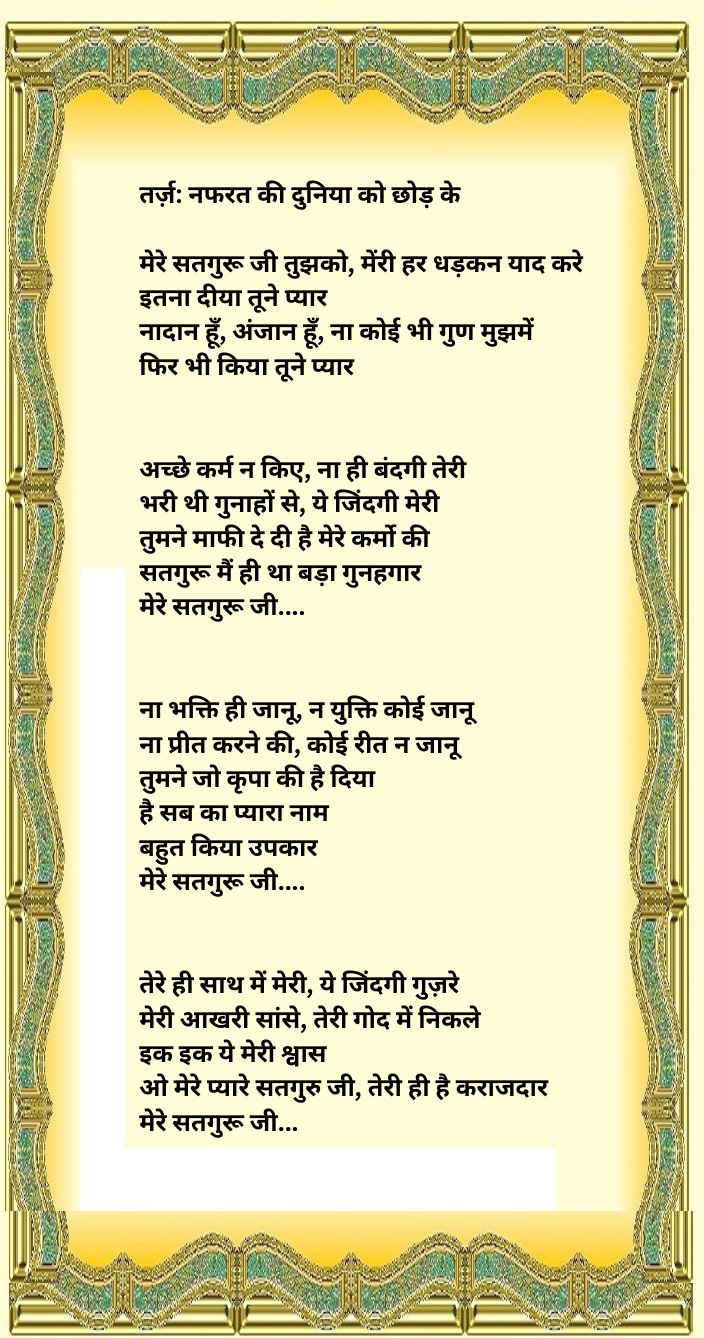 तर्ज़: नफरत की दुनिया को छोड़ के
मेरे सतगुरू जी तुझको, मेंरी हर धड़कन याद करे
इतना दीया तूने प्यार
नादान हूँ, अंजान हूँ, ना कोई भी गुण मुझमें
फिर भी किया तूने प्यार
अच्छे कर्म न किए, ना ही बंदगी तेरी
भरी थी गुनाहों से, ये जिंदगी मेरी
तुमने माफी दे दी है मेरे कर्मो की
सतगुरू मैं ही था बड़ा गुनहगार
मेरे सतगुरू जी....
ना भक्ति ही जानू, न युक्ति कोई जानू
ना प्रीत करने की, कोई रीत न जानू
तुमने जो कृपा की है दिया
है सब का प्यारा नाम
बहुत किया उपकार
मेरे सतगुरू जी....
तेरे ही साथ में मेरी, ये जिंदगी गुज़रे
मेरी आखरी सांसे, तेरी गोद में निकले
इक इक ये मेरी श्वास
ओ मेरे प्यारे सतगुरु जी, तेरी ही है कराजदार
मेरे सतगुरू जी...